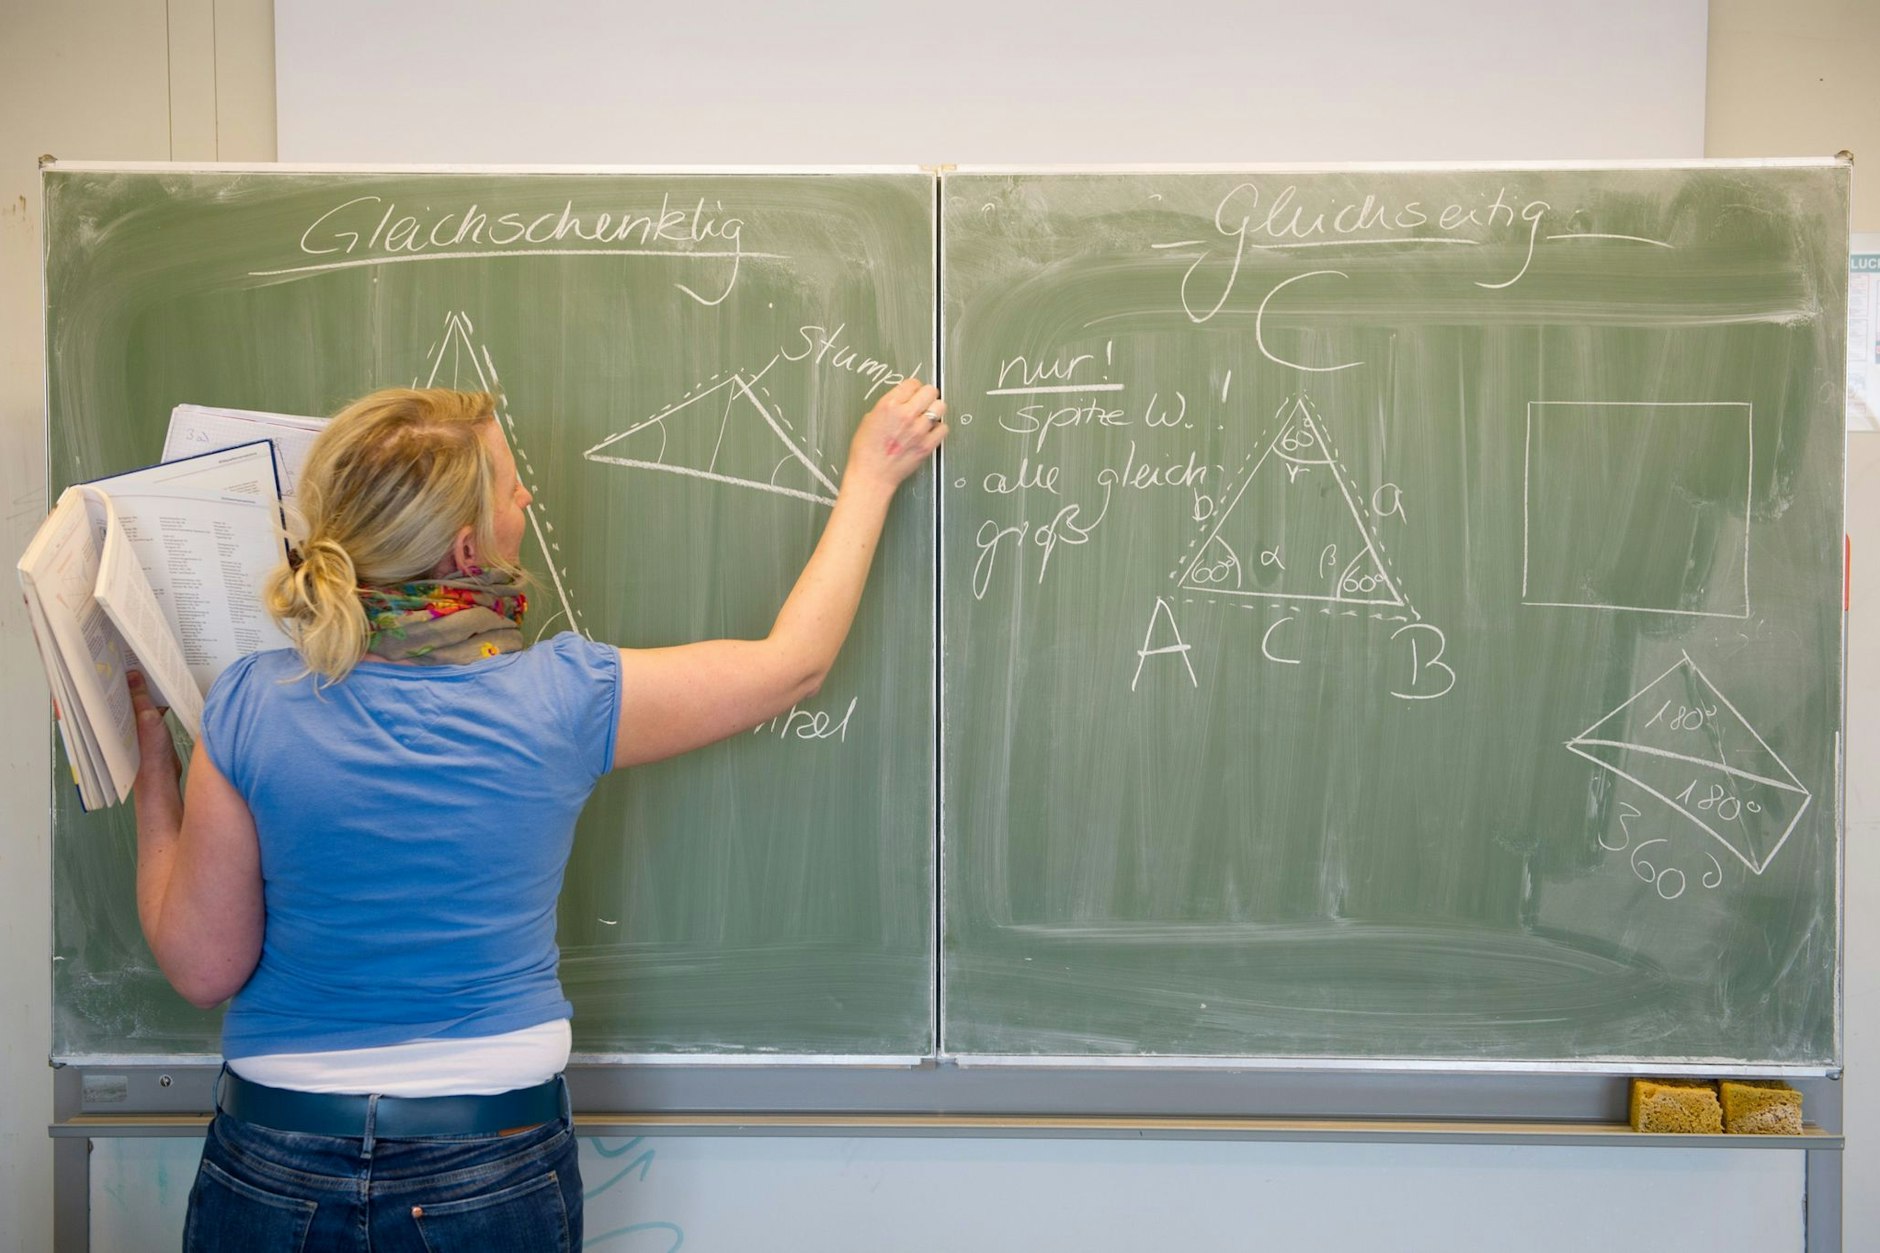 Gleichschenklig
Stumpf
Gleichseitig
C
nur!
spitze W. !
alle gleich
groß
60°
γ
b
a
60°
α
β
60°
A
c
B
180°
180°
360°
LUCH